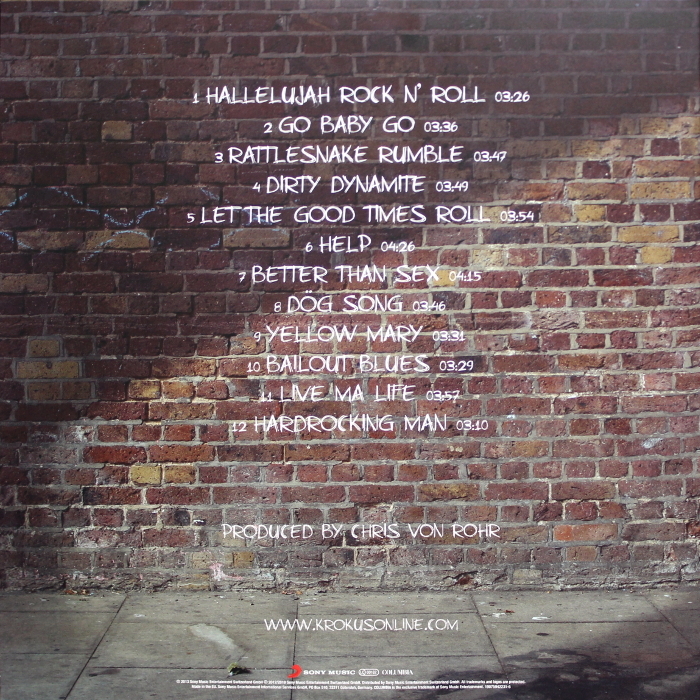 1 HALLELUJAH ROCK N' ROLL 03:26
2 GO BABY GO 03:36
3 RATTLESNAKE RUMBLE 03:47
4 DIRTY DYNAMITE 03:49
5 LET THE GOOD TIMES ROLL 03:54
6 HELP 04:26
7 BETTER THAN SEX 04:15
8 DÖG SONG 03:46
9 YELLOW MARY 03:31
10 BAILOUT BLUES 03:29
11 LIVE MA LIFE 03:57
12 HARDROCKING MAN 03:10
PRODUCED BY CHRIS VON ROHR
WWW.KROKUSONLINE.COM
SONY MUSIC COLUMBIA